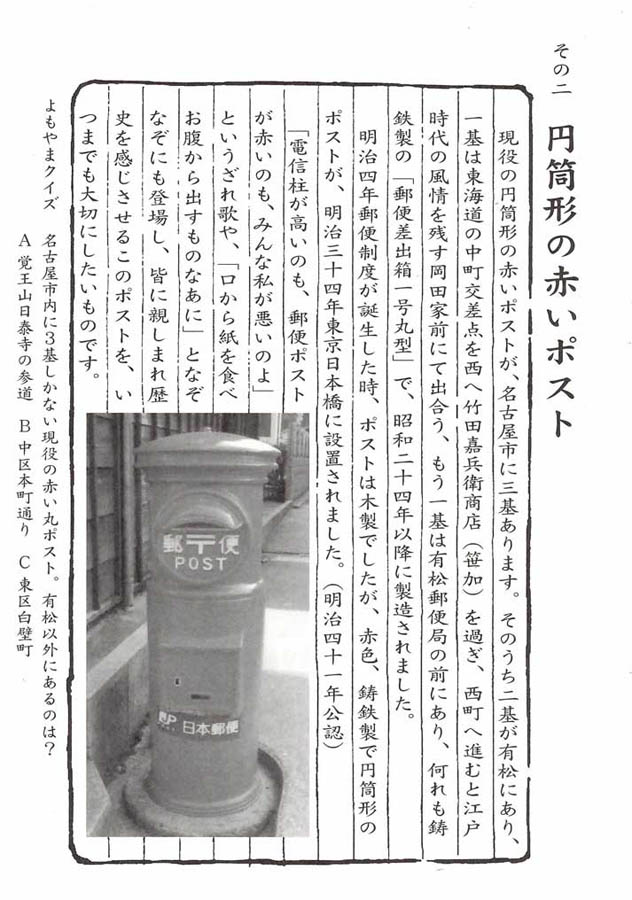 その二　円筒形の赤いポスト
現役の円筒形の赤いポストが、名古屋市に三基あります。そのうち二基が有松にあり、
一基は東海道の中町交差点を西へ竹田嘉兵衛商店（笹加）を過ぎ、西町へ進むと江戸
時代の風情を残す岡田家前にて出合う、もう一基は有松郵便局の前にあり、何れも鋳
鉄製の「郵便差出箱一号丸型」で、昭和二十四年以降に製造されました。
明治四年郵便制度が誕生した時、ポストは木製でしたが、赤色、鋳鉄製で円筒形の
ポストが、明治三十四年東京日本橋に設置されました。（明治四十一年公認）
「電信柱が高いのも、郵便ポスト
が赤いのも、みんな私が悪いのよ」
というざれ歌や、「口から紙を食べ
お腹から出すものなあに」となぞ
なぞにも登場し、皆に親しまれ歴
史を感じさせるこのポストを、い
つまでも大切にしたいものです。
郵〒便
POST
JP 日本郵便
よもやまクイズ　名古屋市内に3基しかない現役の赤い丸ポスト。有松以外にあるのは？
A 覚王山日泰寺の参道　B 中区本町通り　C 東区白壁町